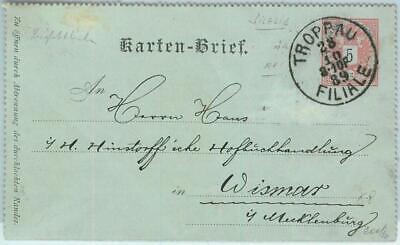 Karten-Brief.
TROPPAU
28
10
89
FILIALE
5
An
Herrn Hans
i/H. Hinstorff'sche Hofbuchhandlung
in
Wismar
i/Mecklenburg
Zu öffnen durch Abtrennung der durchlochten Ränder.